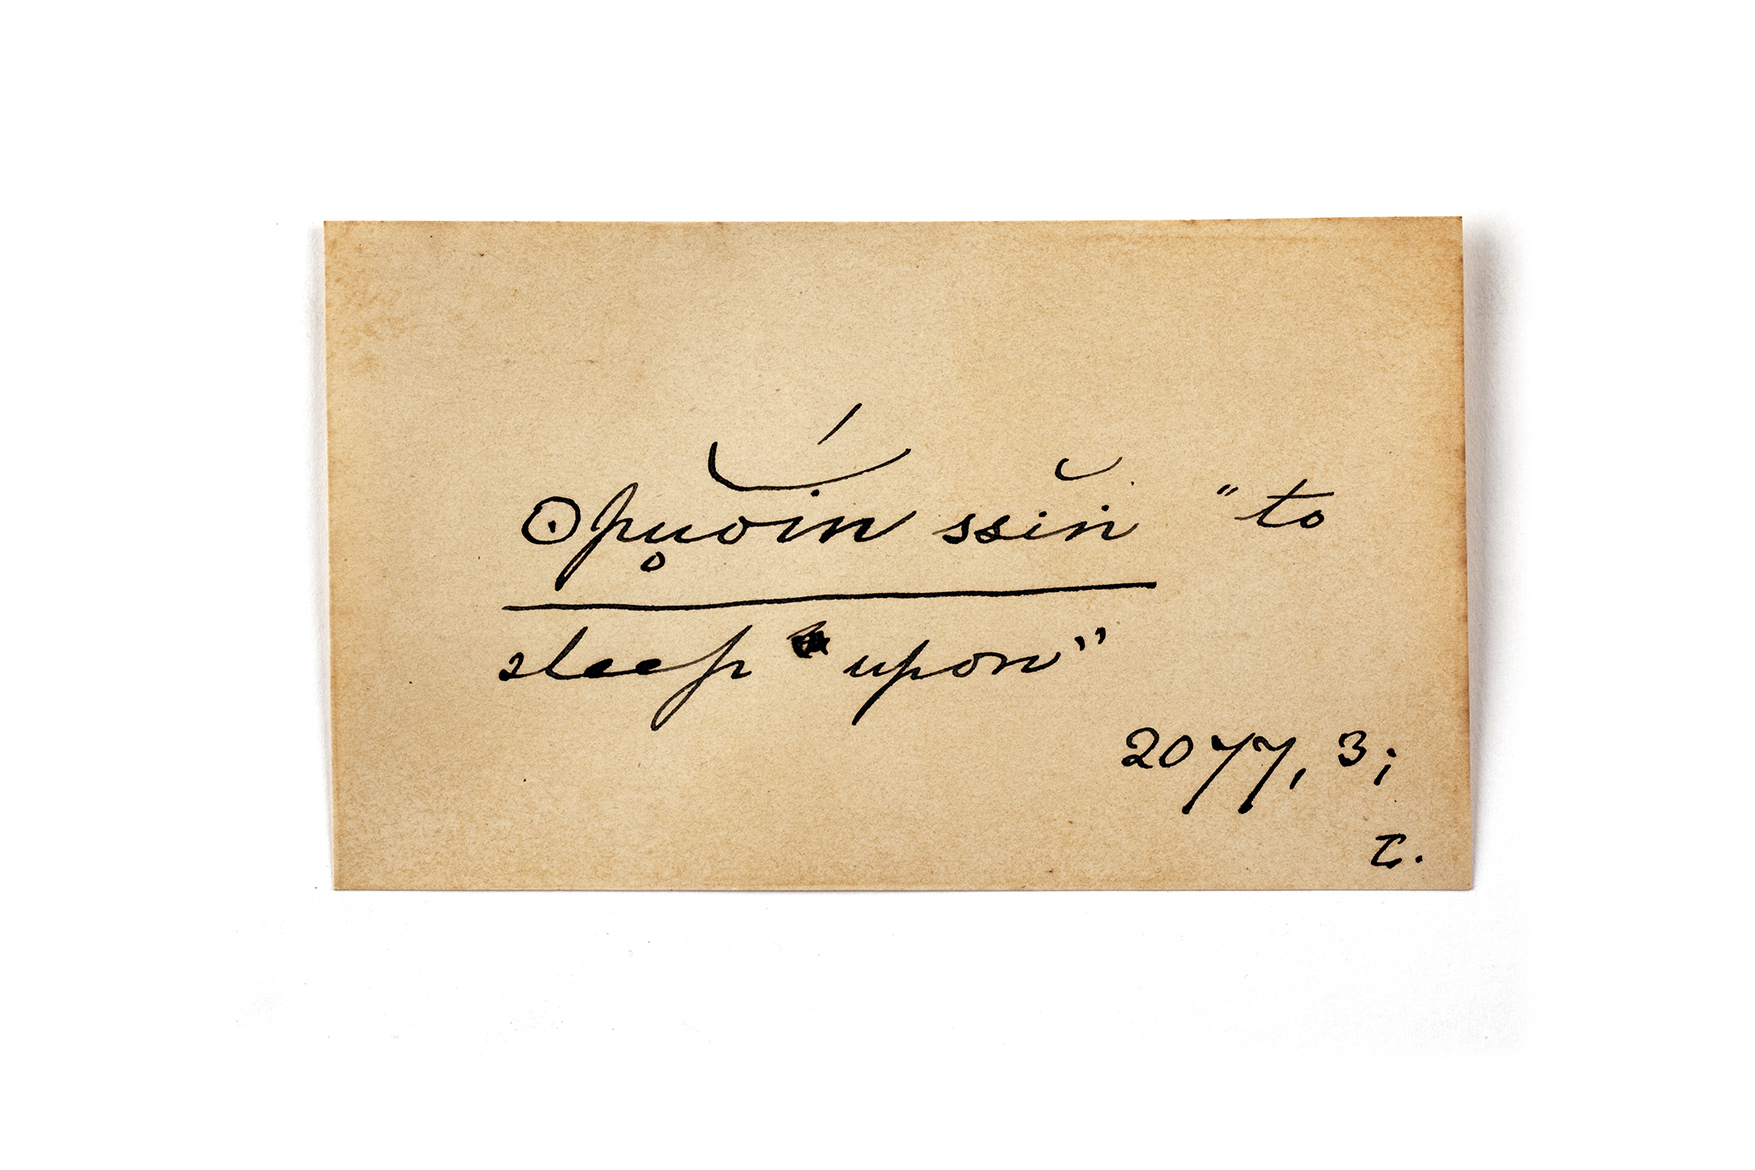 ʘpu̥ŏ́in ssĭṅ "to
sleep upon"
2077, 3;
τ.